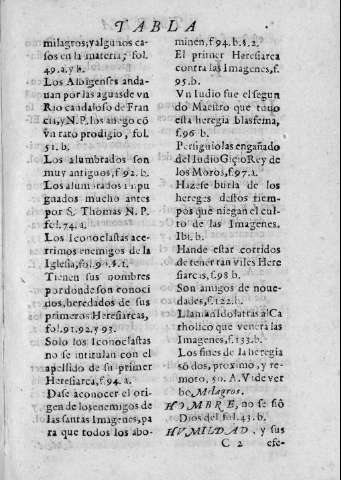 TABLA
milagros; y algunos ca-
sos en la materia; fol.
49. a. y b.
Los Albigenses anda-
uan por las aguas de vn
Rio caudaloso de Fran
cia, y N.P. los anego cō
vn raro prodigio, fol.
51. b.
Los alumbrados son
muy antiguos, f. 92. b.
Los alumbrados impu
gnados mucho antes
por S. Thomas N. P.
fol. 74. a.
Los Iconoclastas ace-
rrimos enemigos de la
Iglesia, fol. 90. §. 1.
Tienen sus nombres
por donde son conoci
dos, heredados de sus
primeros Heresiarcas,
fol. 91. 92. y 93.
Solo los Iconoclastas
no se intitulan con el
apellido de su primer
Heresiarca, f. 94. a.
Dase a conocer el ori
gen de los enemigos de
las santas Imagenes, pa
ra que todos los abo-
minen, f. 94. b. §. 2.
El primer Heresiarca
contra las Imagenes, f.
95. b.
Vn Iudio fue el segun
do Maestro que tuuo
esta heregia blasfema,
f. 96. b.
Persiguiolas engañado
del Iudio Gizio Rey de
los Moros, f. 97. a.
Hazese burla de los
hereges destos tiem-
pos que niegan el cul-
to de las Imagenes.
Ibi. b.
Han de estar corridos
de tener tan viles Here
siarcas, f. 98 b.
Son amigos de noue-
dades, f. 122. b.
Llaman Idolatras al Ca
tholico que venera las
Imagenes, f. 133. b.
Los fines de la heregia
sō dos, proximo, y re-
moto, 50. A. V. de ver
bo Milagros.
HOMBRE, no se fiò
Dios del fol. 43. b.
HVMILDAD, y sus
C 2 efe-